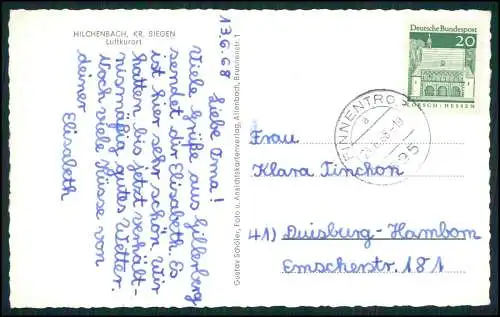 HILCHENBACH, KR. SIEGEN
Luftkurort
13.6.68
Liebe Oma!
Viele Grüße aus Gillerberg
sendet dir Elisabeth. Es
ist hier sehr schön. Wir
hatten bis jetzt verhält-
nismäßig gutes Wetter.
Noch viele Küsse von
deiner
Elisabeth
Gustav Schäfer, Foto u. Ansichtskartenverlag, Allenbach, Brunnenstr. 1
Deutsche Bundespost
20
LORSCH/HESSEN
FINNENTROP
a
Frau
Klara Tinchon
41) Duisburg-Hamborn
Emscherstr. 181